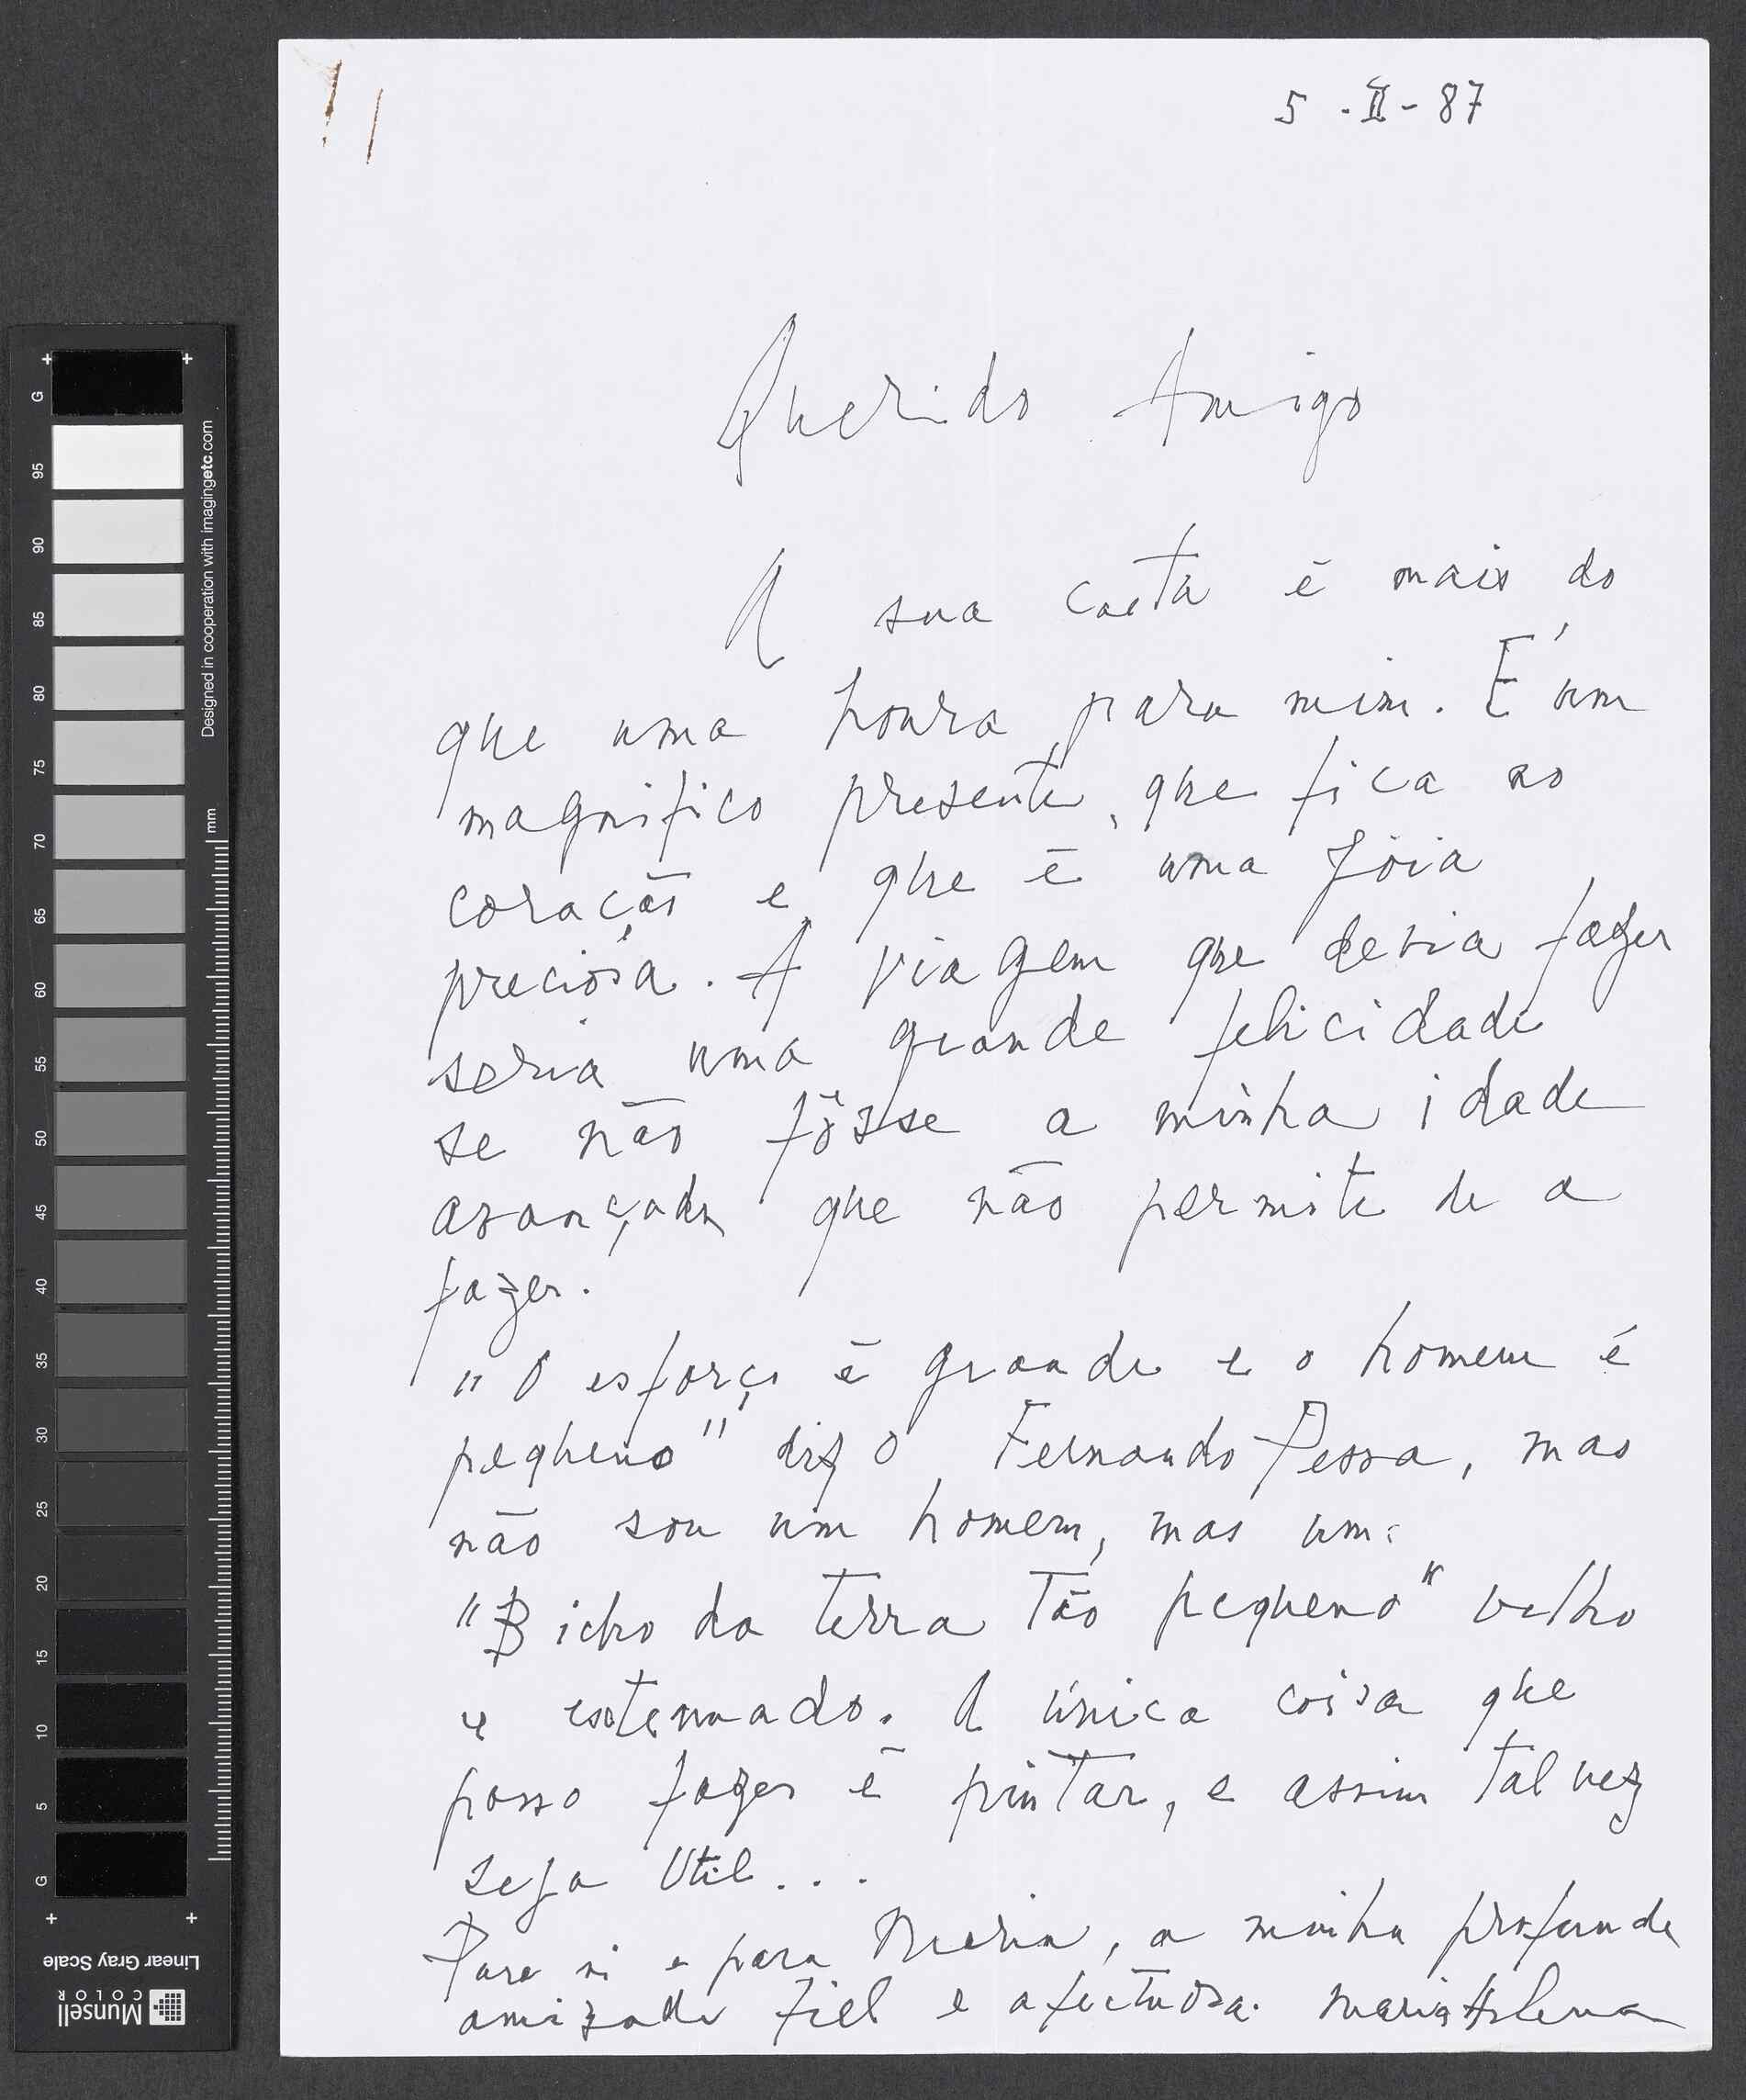 5 - II - 87
Querido Amigo
A sua carta é mais do
que uma honra para mim. É um
magnifico presente, que fica no
coração e que é uma Jóia
preciosa. A viagem que devia fazer
seria uma grande felicidade
se não fôsse a minha idade
avançada que não permite de a
fazer.
"O esforço é grande e o homem é
pequeno" diz o Fernando Pessoa, mas
não sou um homem, mas um:
"Bicho da terra tão pequeno" velho
e estenuado. A única coisa que
posso fazer é pintar, e assim talvez
seja Util...
Para si e para Maria, a minha profunda
amizade fiel e afectuosa. Maria Helena
G
95
90
85
80
75
70
65
60
55
50
45
40
35
30
25
20
15
10
5
G
mm
Designed in cooperation with imagingetc.com
Linear Gray Scale
Munsell
COLOR